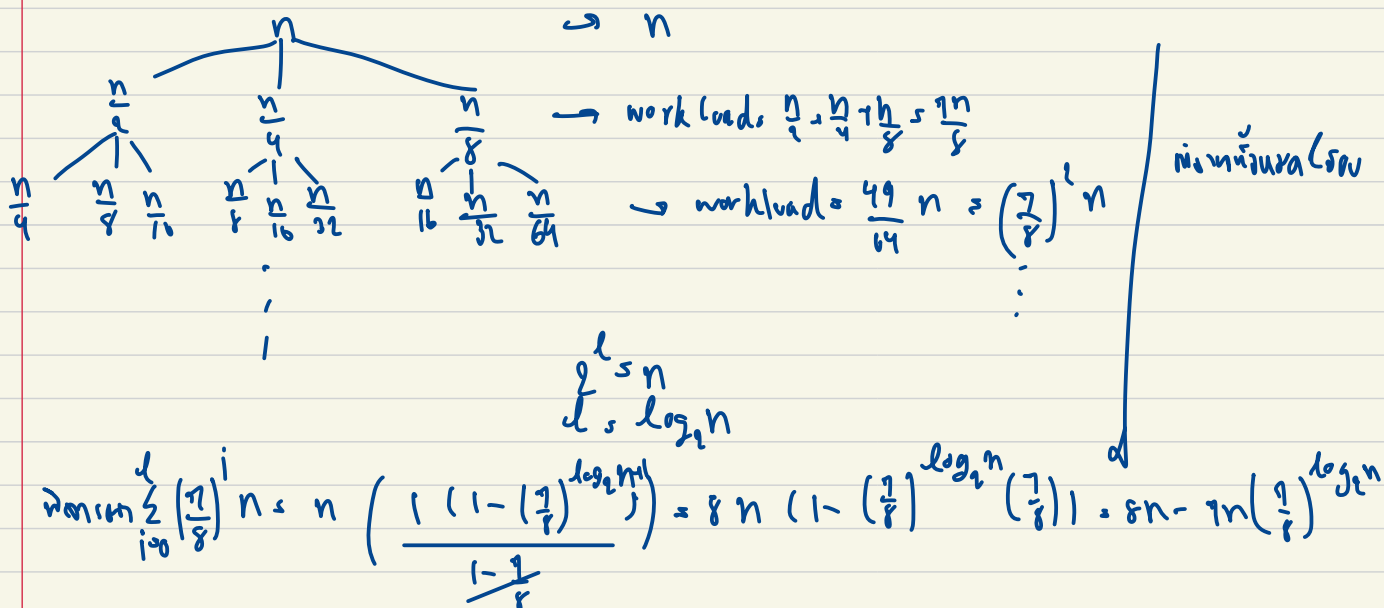 n → n
n/2 n/4 n/8 → workload = n/2 + n/4 + n/8 = 7n/8
n/4 n/8 n/16 n/8 n/16 n/32 n/16 n/32 n/64 → workload = 49/64 n = (7/8)^2 n
2^l = n
l = log_2 n
∑_{i=0}^{l} (7/8)^i n = n (1 (1 - (7/8)^{log_2 n+1}) / (1 - 7/8)) = 8n (1 - (7/8)^{log_2 n} (7/8)) = 8n - 7n (7/8)^{log_2 n}